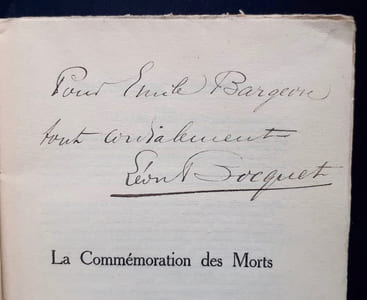 Pour Emile Bargeon
tout cordialement
Léon Bocquet
La Commémoration des Morts